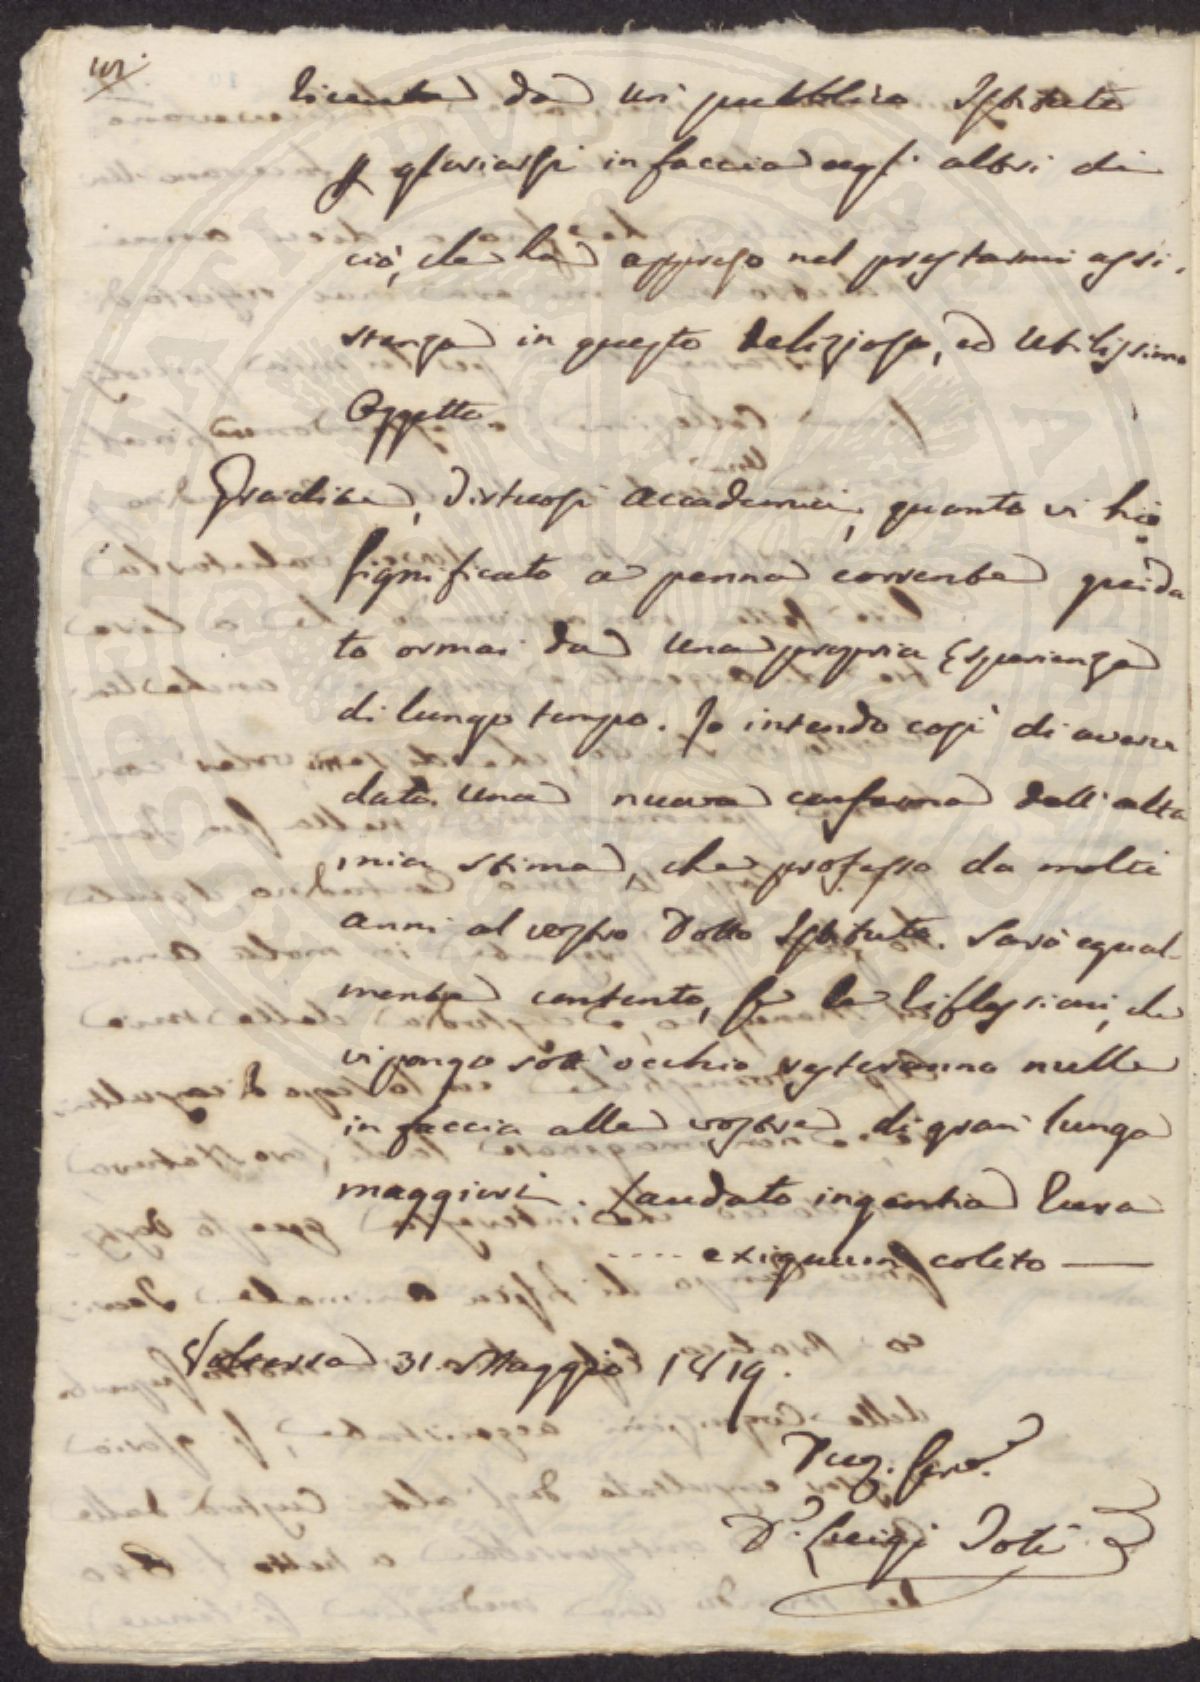 ricevuta da un pubblico Istituto
p gloriarsi in faccia agli altri di
ciò, che ha appreso nel prestarmi assi-
stenza in questo delizioso, ed Utilissimo
Oggetto.
Gradite, Virtuosi Accademici, quanto vi ho
significato a penna corrente guida
to ormai da Una propria Esperienza
di lungo tempo. Io intendo così di avere
data Una nuova conferma dell'alta
mia stima, che professo da molti
anni al vostro Dotto Istituto. Sarò egual-
mente contento, se le riflessioni, che
vi pongo sott'occhio resteranno nulle
in faccia alle vostre di gran lunga
maggiori. Laudato ingentia rura
.... exiguum colito —
31 Maggio 1819.
Serv.
D.r Luigi